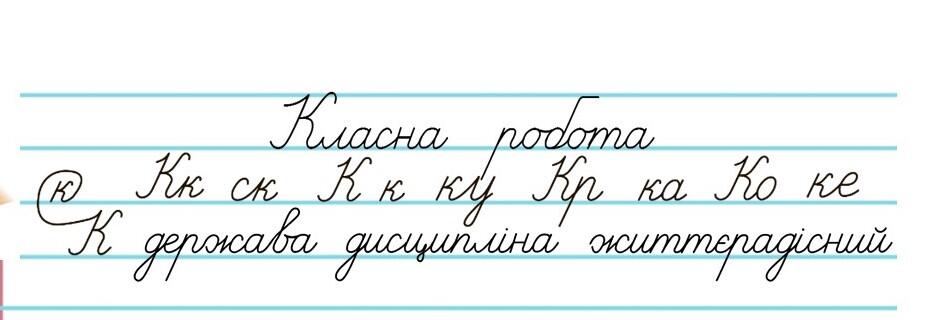 Класна робота
к Кк ск К к ку Кр ка Ко ке
К держава дисципліна життєрадісний